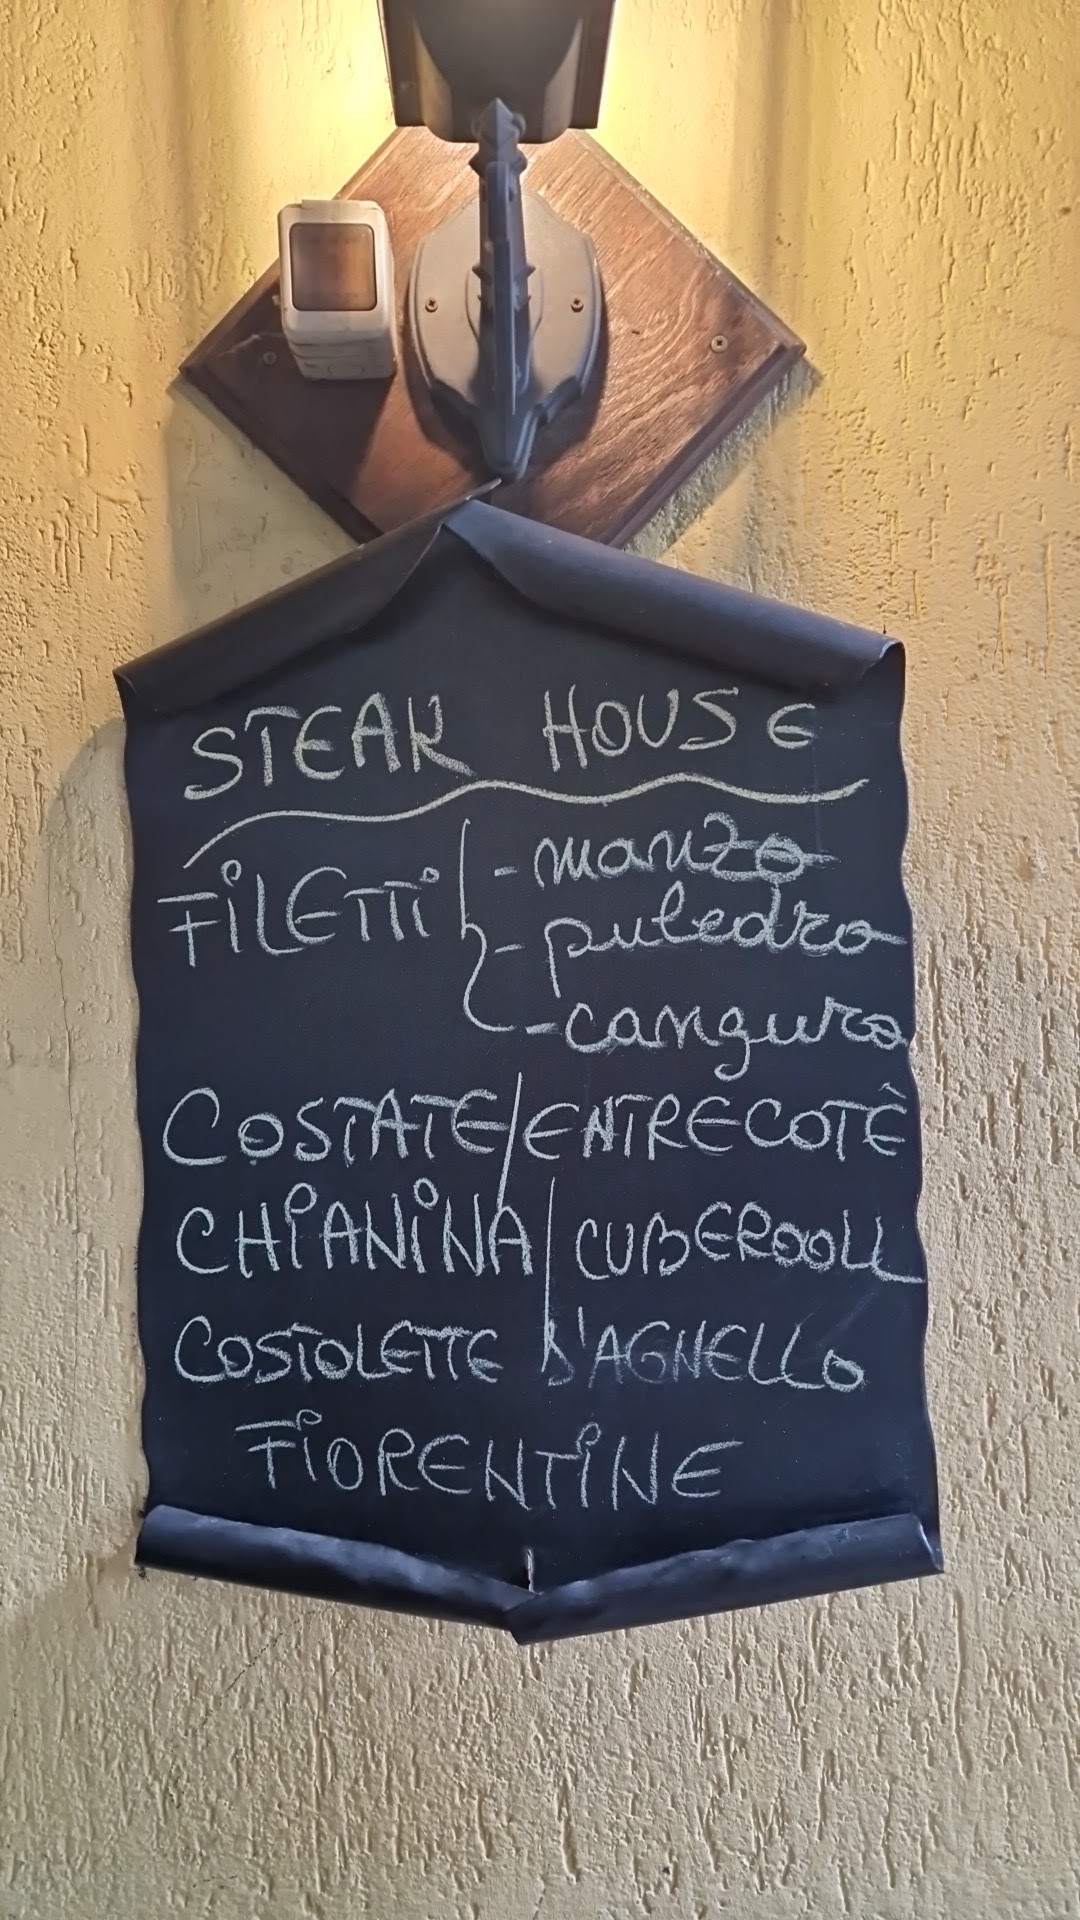 STEAK HOUSE
FiLETTi - manzo
- puledro
- canguro
COSTATE/ENTRECOTÊ
CHiANiNA/CUBEROOLL
COSTOLETTE D'AGNELLO
FiORENTiNE